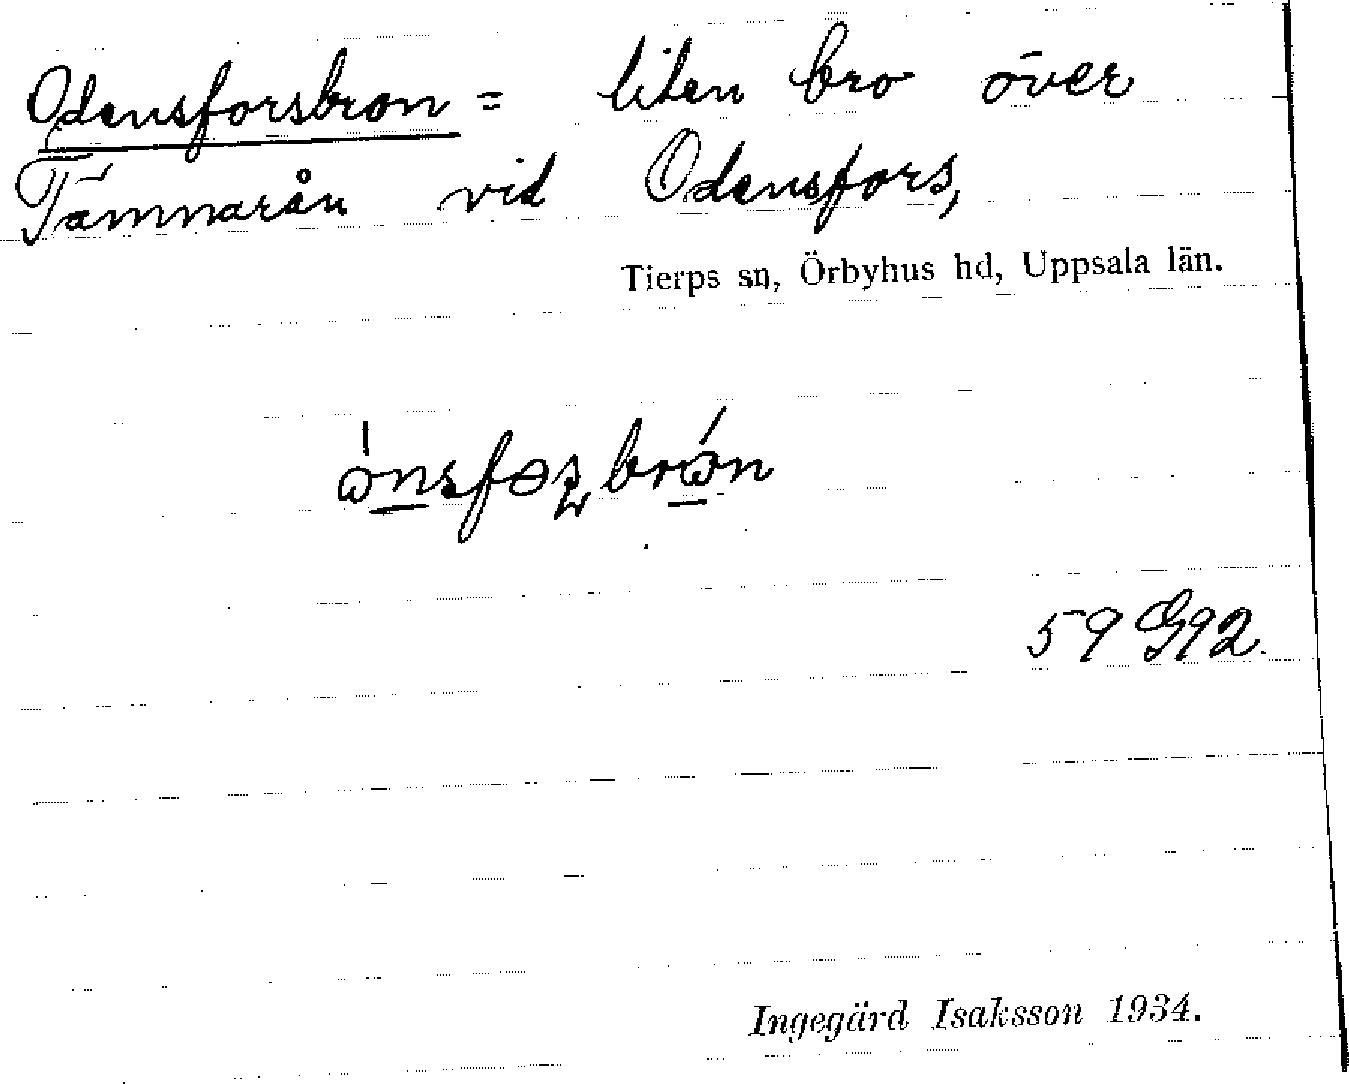 Odensforsbron = liten bro över
Tämnarån vid Odensfors,
Tierps sn, Örbyhus hd, Uppsala län.
59 G92.
Ingegärd Isaksson 1934.